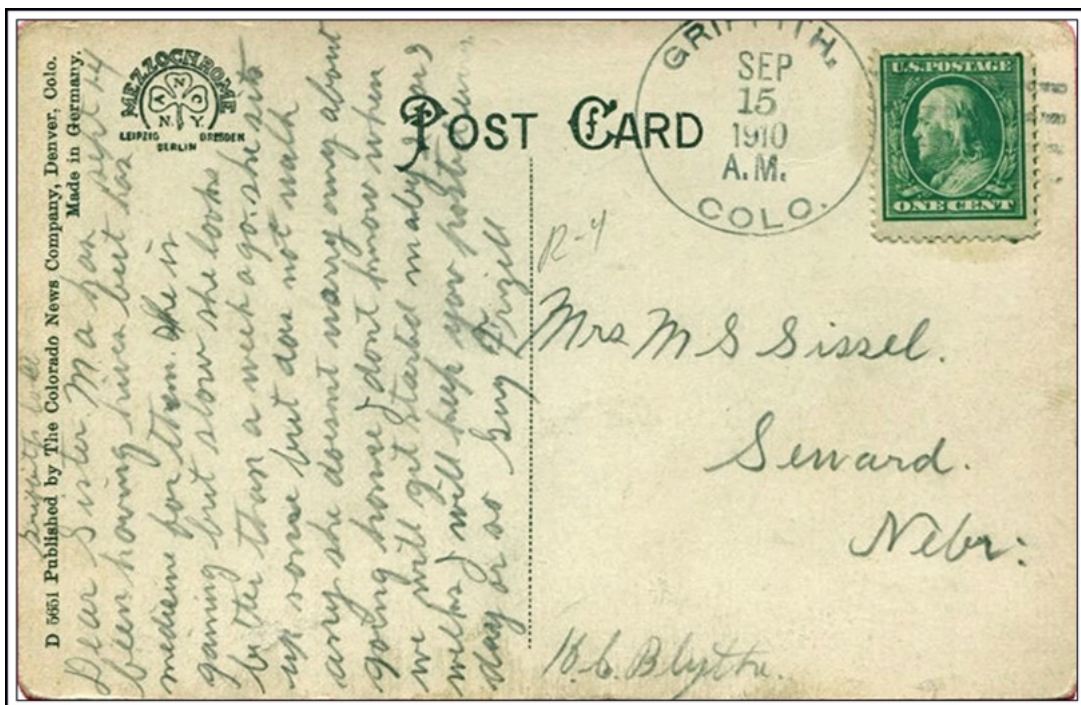 D 5651 Published by The Colorado News Company, Denver, Colo.
Made in Germany.
MEZZOCHROME
A N C O
N. Y.
LEIPZIG DRESDEN
BERLIN
POST CARD
GRIFFITH,
SEP
15
1910
A.M.
COLO.
U.S. POSTAGE
ONE CENT
Sept 14
Dear Sister Ma has
been having hives but has
medicine for them. She is
gaining but slow she looks
better than a week ago. she sits
up some but does not walk
any she doesnt worry any about
going home I dont know when
we will git started maby in
I will keep you posted
day or so Guy Frizell
R-4
Mrs M S Sissel.
Seward.
Nebr.
K. C. Blythe.